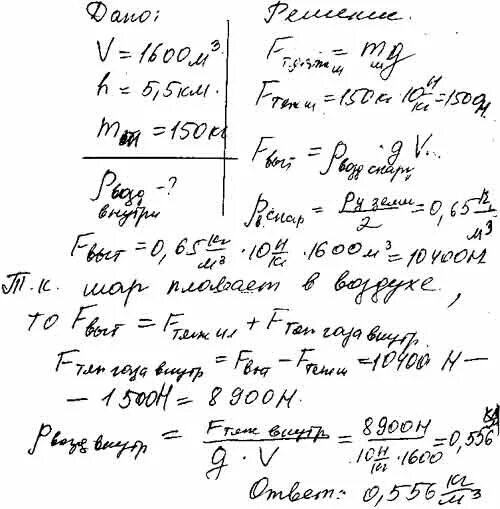 Дано:
V = 1600 м³
h = 5,5 км.
m = 150 кг
ρ возд внутри - ?
Решение.
F тяж ш = m ш g
F тяж ш = 150 кг · 10 Н/кг = 1500 Н
F выт = ρ возд снаруж g V.
ρ в. снар = ρ у земли / 2 = 0,65 кг/м³
F выт = 0,65 кг/м³ · 10 Н/кг · 1600 м³ = 10400 Н
Т.к. шар плавает в воздухе,
то F выт = F тяж ш + F тяж газа внутр
F тяж газа внутр = F выт − F тяж ш = 10400 Н −
− 1500 Н = 8900 Н.
ρ возд внутр = F тяж внутр / g · V = 8900 Н / 10 Н/кг · 1600 = 0,556
Ответ: 0,556 кг/м³